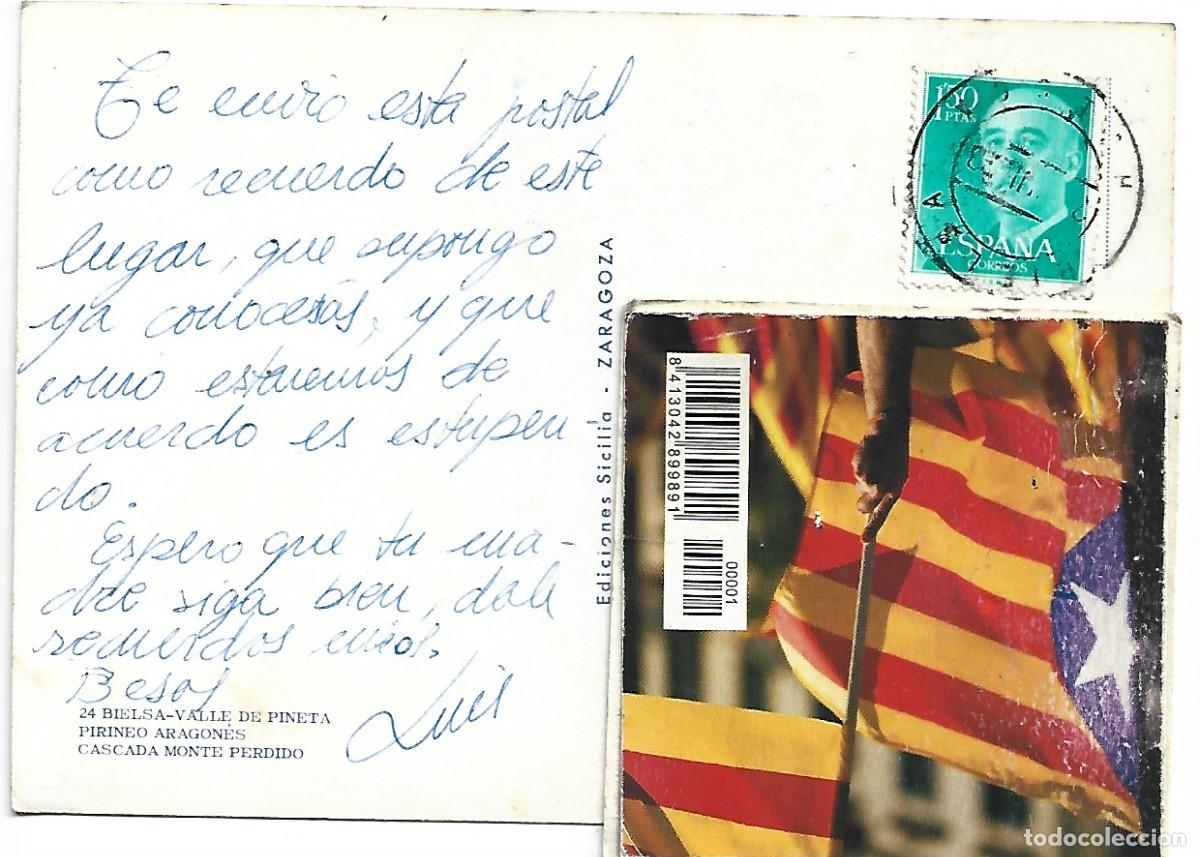 Te envio esta postal
como recuerdo de este
lugar, que supongo
ya conocesás, y que
como estaremos de
acuerdo es estupen
do.
Espero que tu ma-
dre siga bien, dale
recuerdos mios.
Besos
Luis
24 BIELSA-VALLE DE PINETA
PIRINEO ARAGONÉS
CASCADA MONTE PERDIDO
Ediciones Sicilia - ZARAGOZA
1'50
PTAS
ESPAÑA
CORREOS
8 413042 899891
00001
todocoleccion